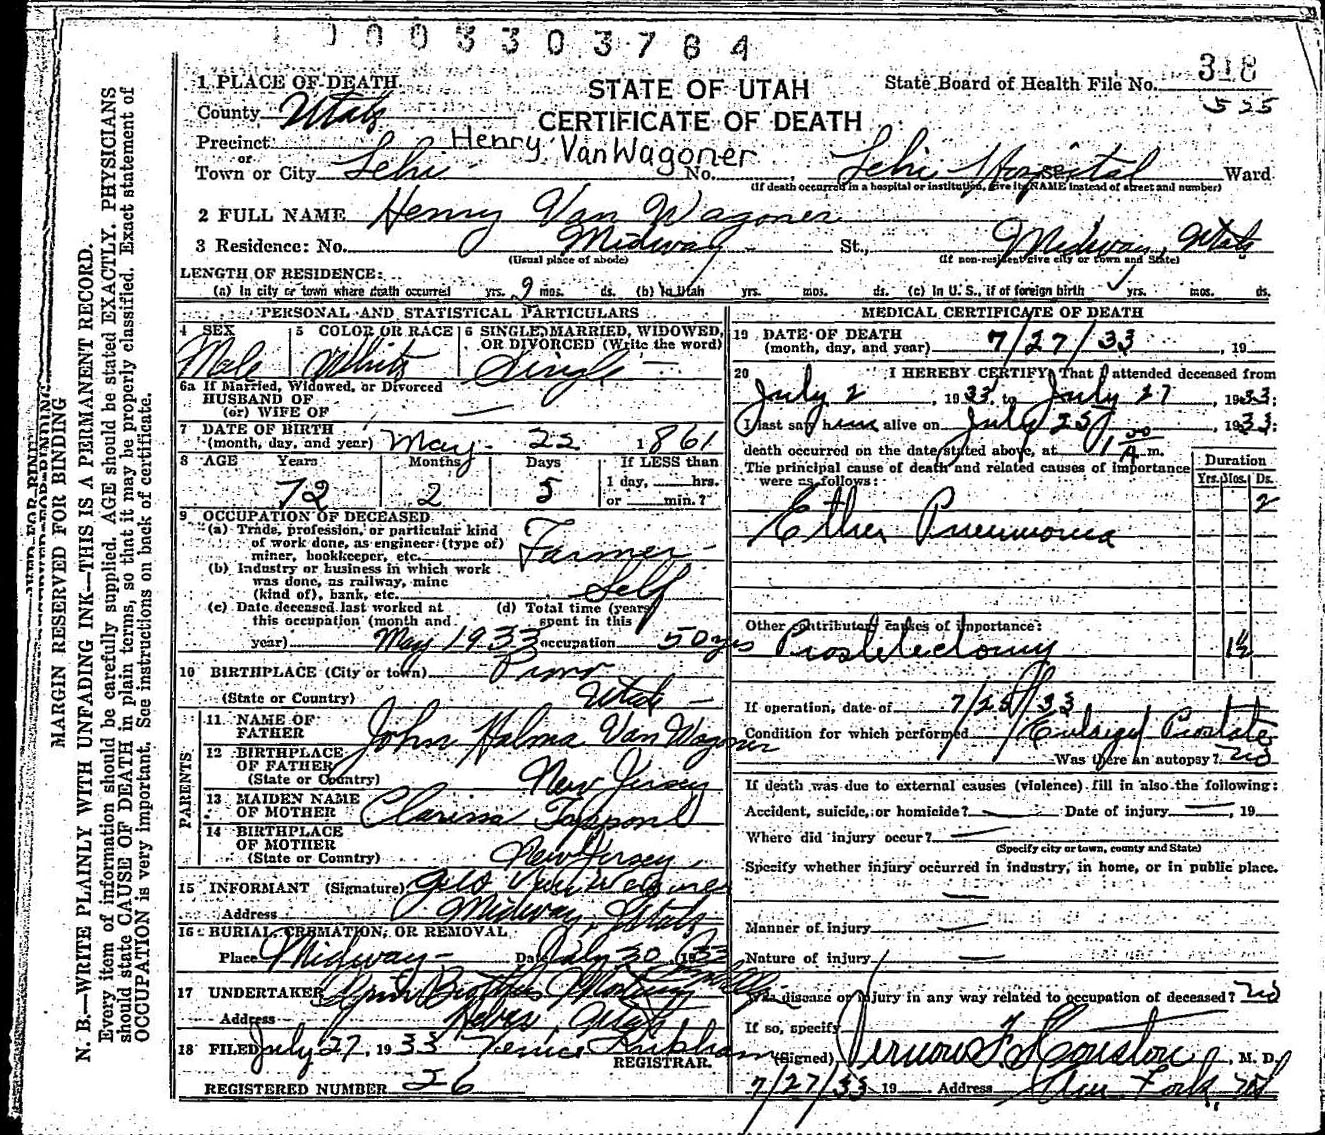 1 0 0 3 3 0 3 7 6 4
318
1 PLACE OF DEATH STATE OF UTAH State Board of Health File No.
525
County Utah CERTIFICATE OF DEATH
Precinct Henry VanWagoner
or
Town or City Lehi No. , Lehi Hospital Ward
(If death occurred in a hospital or institution, give its NAME instead of street and number)
2 FULL NAME Henry Van Wagoner
3 Residence: No. Midway St., Midway, Utah
(Usual place of abode) (If non-resident give city or town and State)
LENGTH OF RESIDENCE:
(a) In city or town where death occurred yrs. 9 mos. ds. (b) In Utah yrs. mos. ds. (c) In U. S., if of foreign birth yrs. mos. ds.
PERSONAL AND STATISTICAL PARTICULARS
4 SEX 5 COLOR OR RACE 6 SINGLE, MARRIED, WIDOWED, OR DIVORCED (Write the word)
Male White Single
6a If Married, Widowed, or Divorced
HUSBAND OF
(or) WIFE OF —
7 DATE OF BIRTH
(month, day, and year) May 22 1861
8 AGE Years Months Days If LESS than
72 2 5 1 day, hrs.
or min.?
9 OCCUPATION OF DECEASED
(a) Trade, profession, or particular kind
of work done, as engineer (type of)
miner, bookkeeper, etc. Farmer
(b) Industry or business in which work
was done, as railway, mine
(kind of), bank, etc. Self
(c) Date deceased last worked at (d) Total time (years)
this occupation (month and spent in this
year) May 1933 occupation 50 yrs
10 BIRTHPLACE (City or town) Provo
(State or Country) Utah
PARENTS
11 NAME OF
FATHER John Halma Van Wagoner
12 BIRTHPLACE
OF FATHER
(State or Country) New Jersey
13 MAIDEN NAME
OF MOTHER Clarissa Tappond
14 BIRTHPLACE
OF MOTHER
(State or Country) New Jersey
15 INFORMANT (Signature)
Address Midway, Utah
16 BURIAL, CREMATION, OR REMOVAL
Place Midway Date July 30 1933
17 UNDERTAKER Brothers Mortuary
Address Heber, Utah
18 FILED July 27, 1933
REGISTRAR.
REGISTERED NUMBER 26
MEDICAL CERTIFICATE OF DEATH
19 DATE OF DEATH
(month, day, and year) 7/27/33 , 19
20 I HEREBY CERTIFY, That I attended deceased from
July 2 , 1933, to July 27 , 1933;
I last saw him alive on July 25 , 1933;
death occurred on the date stated above, at 1 00 A m.
The principal cause of death and related causes of importance
were as follows: Duration
Yrs. Mos. Ds.
2
Ether Pneumonia
Other contributory causes of importance:
Prostatectomy
If operation, date of 7/25/33
Condition for which performed Enlarged Prostate
Was there an autopsy? no
If death was due to external causes (violence) fill in also the following:
Accident, suicide, or homicide? — Date of injury — , 19
Where did injury occur? —
(Specify city or town, county and State)
Specify whether injury occurred in industry, in home, or in public place.
—
Manner of injury —
Nature of injury —
Was disease or injury in any way related to occupation of deceased? no
If so, specify
(Signed) Vernon F. Houston , M. D.
7/27/33 19 Address Am. Fork, Utah
MARGIN RESERVED FOR BINDING
N. B.—WRITE PLAINLY WITH UNFADING INK—THIS IS A PERMANENT RECORD.
Every item of information should be carefully supplied. AGE should be stated EXACTLY. PHYSICIANS
should state CAUSE OF DEATH in plain terms, so that it may be properly classified. Exact statement of
OCCUPATION is very important. See instructions on back of certificate.